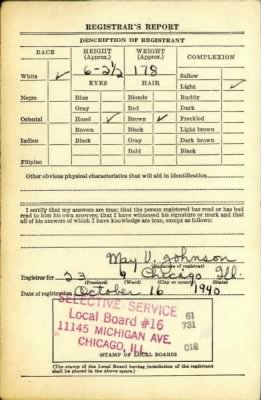 REGISTRAR'S REPORT
DESCRIPTION OF REGISTRANT
RACE HEIGHT (Approx.) WEIGHT (Approx.) COMPLEXION
White ✓ 6-2½ 178 Sallow
EYES HAIR Light ✓
Negro Blue Blonde Ruddy
Gray Red Dark
Oriental Hazel ✓ Brown ✓ Freckled
Brown Black Light brown
Indian Black Gray Dark brown
Bald Black
Filipino
Other obvious physical characteristics that will aid in identification
I certify that my answers are true; that the person registered has read or has had
read to him his own answers; that I have witnessed his signature or mark and that
all of his answers of which I have knowledge are true, except as follows:
May V. Johnson
(Signature of registrar)
Registrar for 23 9 Chicago Ill.
(Precinct) (Ward) (City or county) (State)
Date of registration October 16 1940
SELECTIVE SERVICE
Local Board #16 61
11145 MICHIGAN AVE. 731
CHICAGO, ILL 016
(STAMP OF LOCAL BOARD)
(The stamp of the Local Board having jurisdiction of the registrant
shall be placed in the above space.)